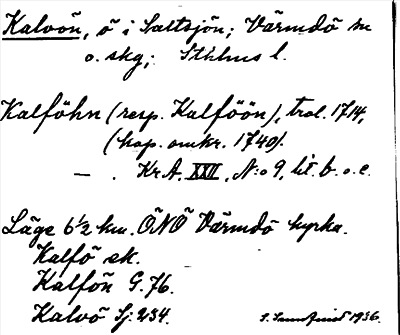 Kalvön, ö i Saltsjön; Värmdö sn
o. skg; Sthlms l.
Kalföhn (resp. Kalföön), trol. 1714,
(kop. omkr. 1740).
— . Kr.A. XXII, N:o 9, lit. b. o. c.
Läge 6½ km. ÖNÖ Värmdö kyrka.
Kalfö ek.
Kalfön G. 76.
Kalvö Sj: 234.
1936.